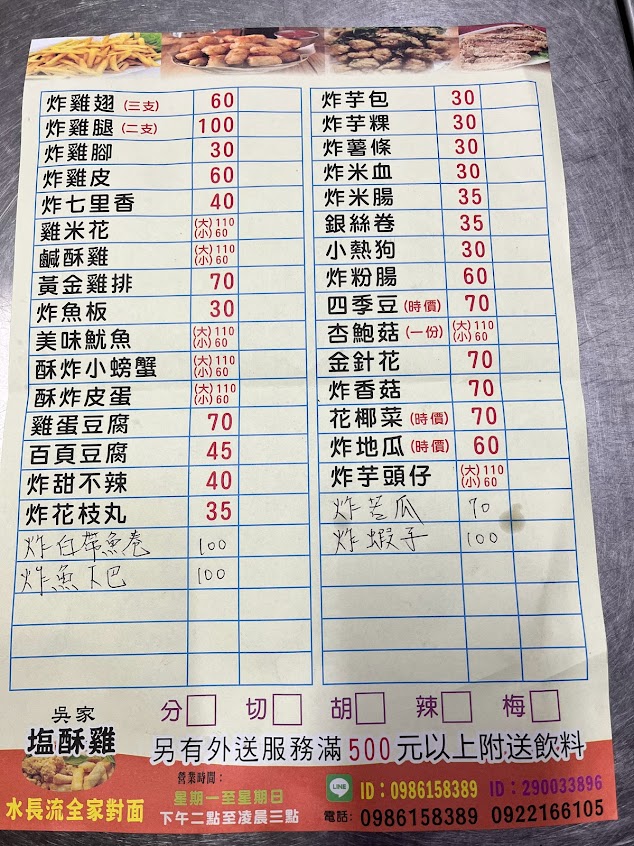 炸雞翅(三支) 60
炸雞腿(二支) 100
炸雞腳 30
炸雞皮 60
炸七里香 40
雞米花 (大)110 (小)60
鹹酥雞 (大)110 (小)60
黃金雞排 70
炸魚板 30
美味魷魚 (大)110 (小)60
酥炸小螃蟹 (大)110 (小)60
酥炸皮蛋 (大)110 (小)60
雞蛋豆腐 70
百頁豆腐 45
炸甜不辣 40
炸花枝丸 35
炸白帶魚卷 100
炸魚下巴 100
炸芋包 30
炸芋粿 30
炸薯條 30
炸米血 30
炸米腸 35
銀絲卷 35
小熱狗 30
炸粉腸 60
四季豆(時價) 70
杏鮑菇(一份) (大)110 (小)60
金針花 70
炸香菇 70
花椰菜(時價) 70
炸地瓜(時價) 60
炸芋頭仔 (大)110 (小)60
炸苦瓜 70
炸蝦子 100
分 切 胡 辣 梅
吳家
塩酥雞
另有外送服務滿500元以上附送飲料
水長流全家對面
營業時間:
星期一至星期日
下午二點至凌晨三點
LINE ID:0986158389 ID:290033896
電話:0986158389 0922166105